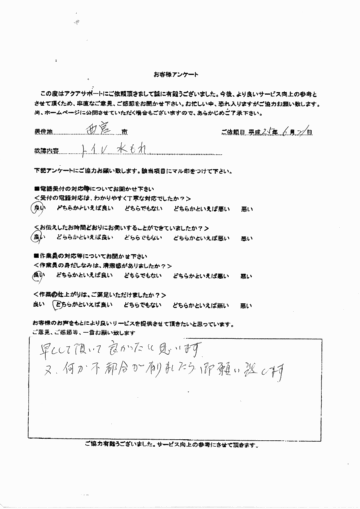 お客様アンケート
この度はアクアサポートにご依頼頂きまして誠に有難うございました。今後、より良いサービス向上の参考と
させて頂くため、率直なご意見、ご感想をお聞かせ下さい。お忙しい中、恐れ入りますがご協力お願い致します。
尚、ホームページに公開させていただく場合もございますので、あらかじめご了承下さい。
西宮 市 ご依頼日 平成 25年 6月
故障内容 トイレ 水もれ
下記アンケートにご協力お願い致します。該当項目にマル印をつけて下さい。
■電話受付の対応等についてお聞かせ下さい
<受付の電話対応は、わかりやすく丁寧な対応でしたか?>
良い どちらかといえば良い どちらでもない どちらかといえば悪い 悪い
<お伝えしたお時間どおりにお伺いすることができていましたか?>
良い どちらかといえば良い どちらでもない どちらかといえば悪い 悪い
■作業員の対応等についてお聞かせ下さい
<作業員の身だしなみは、清潔感がありましたか?>
良い どちらかといえば良い どちらでもない どちらかといえば悪い 悪い
<作業の仕上がりは、ご満足いただけましたか?>
良い どちらかといえば良い どちらでもない どちらかといえば悪い 悪い
お客様のお声をもとにより良いサービスを提供させて頂きたいと思っています。
ご意見、ご感想等、一言お願い致します
早くして頂いて良かったと思います
又、何か不都合が有りましたら御願い致します
ご協力有難うございました。サービス向上の参考にさせて頂きます。